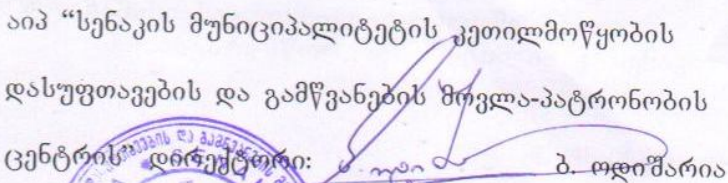 აიპ “სენაკის მუნიციპალიტეტის კეთილმოწყობის
დასუფთავების და გამწვანების მოვლა-პატრონობის
ცენტრის” დირექტორი: ბ. ოდიშარია